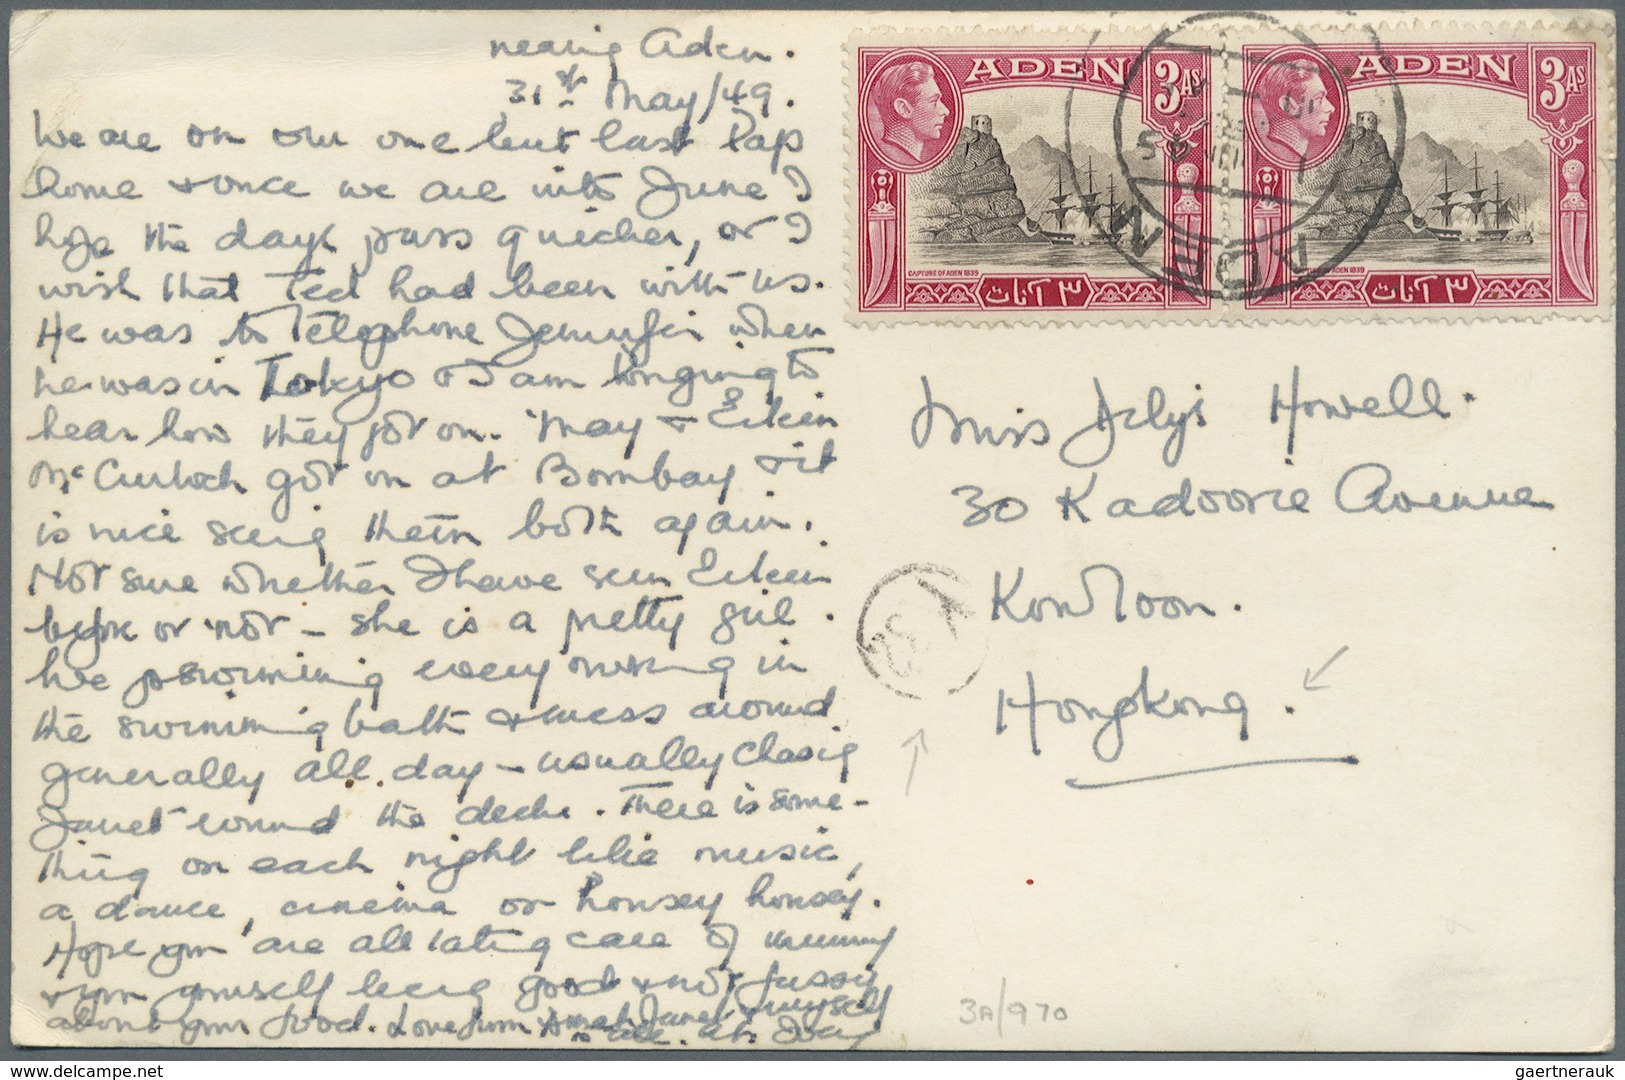 nearing Aden.
31st May/49.
We are on our one but last lap
home & once we are into June I
hope the days pass quicker, or I
wish that Ted had been with us.
He was to telephone Jennifer when
he was in Tokyo & I am longing to
hear how they got on. May & Eileen
McCulloch got on at Bombay & it
is nice seeing them both again.
Not sure whether I have seen Eileen
before or not – she is a pretty girl.
We swimming every morning in
the swimming bath & mess around
generally all day – usually chasing
Janet round the decks. There is some-
thing on each night like music,
a dance, cinema or housey housey.
Hope you are all taking care of mummy
& you yourself being good & not fussy
about your food. Love from Janet & myself
ADEN
3AS
CAPTURE OF ADEN 1839
٣ آنات
ADEN
3AS
CAPTURE OF ADEN 1839
٣ آنات
ADEN
Miss Dilys Howell.
30 Kadoorie Avenue
Kowloon.
Hongkong.
3A/970
www.delcampe.net
gaertnerauk